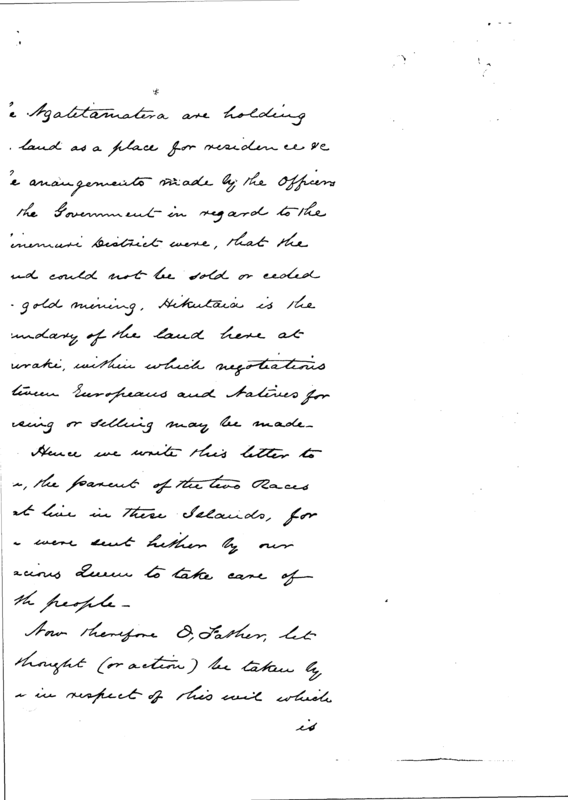 e Ngatitamatera are holding
land as a place for residence &c
e arrangements made by the Officers
the Government in regard to the
inemuri District were, that the
nd could not be sold or ceded
gold mining. Hikutaia is the
undary of the land here at
uraki, within which negotiations
tween Europeans and Natives for
asing or selling may be made—
Hence we write this letter to
u, the parent of the two Races
at live in these Islands, for
u were sent hither by our
acious Queen to take care of
th people—
Now therefore O, Father, let
thought (or action) be taken by
u in respect of this evil which
is